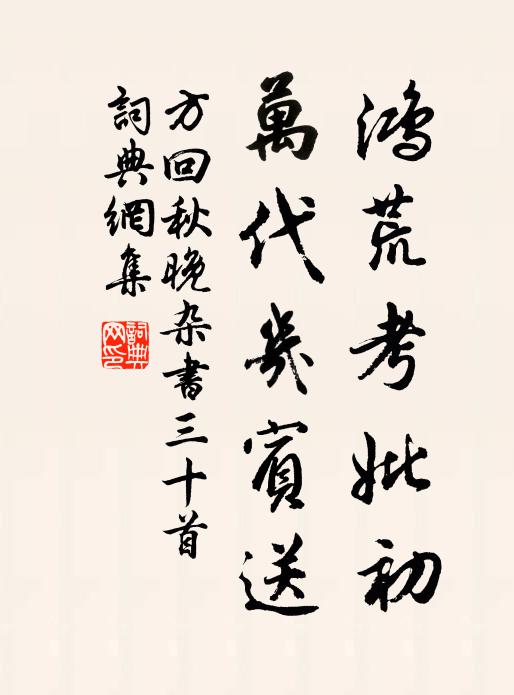 鸿荒考妣初
萬代幾賓送
方回秋晚杂書三十首
詞典網集
詞典
网印